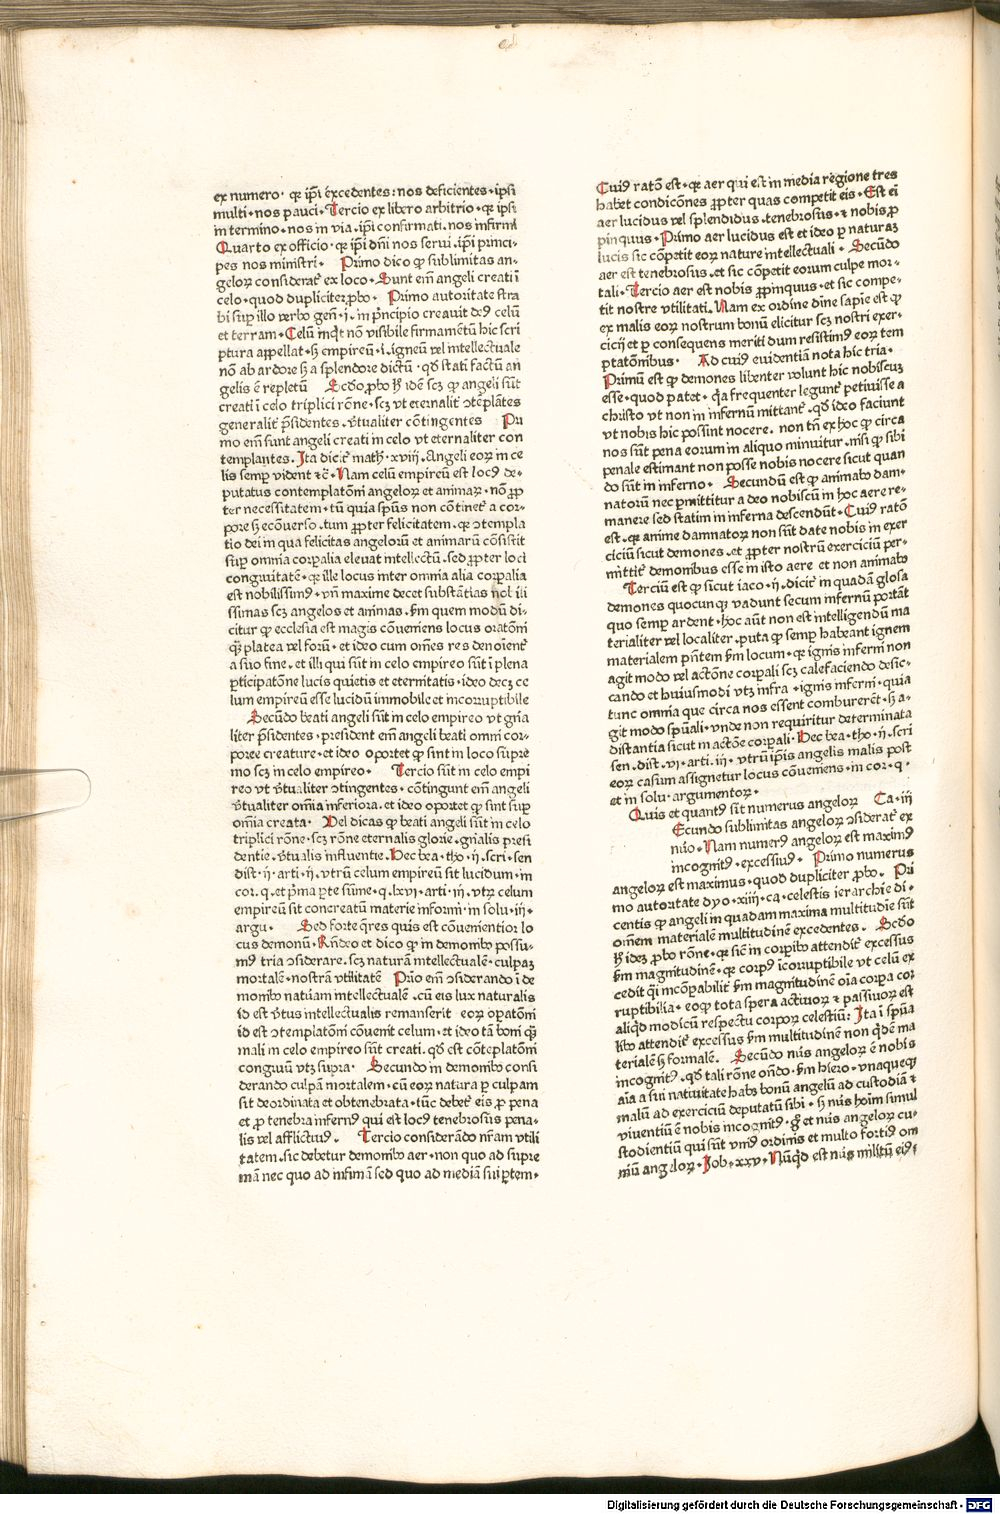 ex numero· qꝛ ip̄i excedentes: nos deficientes·ip̄i
multi·nos pauci·Tercio ex libero arbitrio·qꝛ ip̄i
in termino·nos in via·ip̄i confirmati·nos infirmi
Quarto ex officio·qꝛ ip̄i dn̄i nos serui·ip̄i princi-
pes nos ministri· Primo dico ꝙ sublimitas an-
gelorꝫ considerat̄ ex loco·Sunt em̄ angeli creati ī
celo·quod dupliciter ꝓbo· Primo autoritate stra
bi suꝑ illo verbo gen̄·i·in p̄ncipio creauit dꝰ celū
et terram·Celū inqͥt nō visibile firmamētū hic scri
ptura appellat·sꝫ empireū·i·igneū vel intellectuale
nō ab ardore sꝫ a splendore dictū·qd̄ stati factū an
gelis ē repletū Scd̄o ꝓbo hͦ idē scꝫ ꝙ angeli sūt
creati ī celo triplici rōne·scꝫ vt eternalit̄ ꝯtēplātes
generalit̄ p̄sidentes·v̄tualiter cōtingentes Pri
mo em̄ sunt angeli creati in celo vt eternaliter con
templantes·Ita dicit̄ math̄·xviij·Angeli eoꝝ in ce
lis semꝑ vident ⁊c̄·Nam celū empireū est locꝰ de-
putatus contemplatōni angeloꝝ et animaꝝ·nō ꝓp
ter necessitatem·tū quia sp̄us non cōtinet̄ a cor-
pore sꝫ ecōuerso·tum ꝓpter felicitatem·qꝛ ꝯtempla
tio dei in qua felicitas angelorū et animarū cōsistit
suꝑ omnia corꝑalia eleuat intellectū·sed ꝓpter loci
congruitatē·qꝛ ille locus inter omnia alia corꝑalia
est nobilissimꝰ·vn̄ maxime decet substātias nobili
ssimas scꝫ angelos et animas·fm̄ quem modū di-
citur ꝙ ecclesia est magis cōueniens locus oratōni
qꝫ platea vel forū·et ideo cum om̄es res denoīent̄
a suo fine·et illi qui sūt in celo empireo sūt ī plena
ꝑticipatōne lucis quietis et eternitatis·ideo decꝫ ce
lum empireū esse lucidū immobile et incorruptibile
Secūdo beati angeli sūt in celo empireo vt gn̄a
liter p̄sidentes·president em̄ angeli beati omni cor-
poree creature·et ideo oportet ꝙ sint in loco supre
mo scꝫ in celo empireo· Tercio sūt in celo empi
reo vt v̄tualiter ꝯtingentes·cōtingunt em̄ angeli
v̄tualiter om̄ia inferiora·et ideo oportet ꝙ sint suꝑ
om̄ia creata· Vel dicas ꝙ beati angeli sūt in celo
triplici rōne·scꝫ rōne eternalis glorie·gn̄alis presi
dentie·v̄tualis influentie·Hec bea·tho·ij·scri·sen
dist·ij·arti·ij·vtrū celum empireū sit lucidum·in
cor·q·et p̄ma ꝑte sūme·q·lxvi·arti·iij·vtꝝ celum
empireū sit concreatū materie informi·in solu·iij·
argu· Sed forte q̄res quis est cōuenientior lo
cus demonū·Rn̄deo et dico ꝙ in demonibꝰ possu-
mꝰ tria ꝯsiderare·scꝫ naturā intellectualē·culpaꝫ
mortalē·nostrā vtilitatē Prīo em̄ ꝯsiderando ī de
monibꝰ natuam intellectualē·cū eis lux naturalis
id est v̄tus intellectualis remanserit eoꝝ oꝑatōni
id est ꝯtemplatōni cōuenit celum·et ideo tā boni qꝫ
mali in celo empireo sūt creati·qd̄ est cōtēplatōni
congruū vtꝫ supra· Secundo in demonibꝰ consi
derando culpā mortalem·cū eoꝝ natura ꝑ culpam
sit deordinata et obtenebrata·tūc debet̄ eis ꝓ pena
et ꝓ tenebra infernꝰ qui est locꝰ tenebrosus pena-
lis vel afflictiuꝰ· Tercio considerādo nr̄am vtili
tatem·sic debetur demonibꝰ aer·non quo ad supre
mā nec quo ad infimā sed quo ad mediā sui ꝑtem·
Cuiꝰ ratō est·qꝛ aer qui est in media regione tres
habet condicōnes ꝓpter quas competit eis·Est ei
aer lucidus vel splendidus·tenebrosus·⁊ nobis ꝓ
pinquus·Primo aer lucidus est et ideo ꝑ naturaꝫ
lucis sic cōpetit eoꝝ nature intellectuali·Secūdo
aer est tenebrosus·et sic cōpetit eorum culpe mor-
tali·Tercio aer est nobis ꝓpinquus·et sic compe-
tit nostre vtilitati·Nam ex ordine diīne sapie est ꝙ
ex malis eoꝝ nostrum bonū elicitur scꝫ nostri exer-
cicij et ꝑ consequens meriti dum resistimꝰ eoꝝ tem
ptatōnibus· Ad cuiꝰ euidentiā nota hic tria·
Primū est ꝙ demones libenter volunt hic nobiscꝫ
esse·quod patet·qꝛ frequenter legunt̄ petiuisse a
christo vt non in infernū mittant̄·qd̄ ideo faciunt
vt nobis hic possint nocere·non tn̄ ex hoc ꝙ circa
nos sūt pena eorum in aliquo minuitur·nisi ꝙ sibi
penale estimant non posse nobis nocere sicut quan
do sūt in inferno· Secundū est ꝙ animabꝰ dam-
natorū nec ꝑmittitur a deo nobiscū in hoc aere re-
manere sed statim in inferna descendūt·Cuiꝰ ratō
est·qꝛ anime damnatoꝝ non sūt date nobis in exer
ciciū sicut demones·et ꝓpter nostrū exerciciū ꝑer-
mittit̄ demonibus esse in isto aere et non animabꝰ
Terciū est ꝙ sicut iaco·ij·dicit̄ in quadā glosa
demones quocunqꝫ vadunt secum infernū portāt
quo semꝑ ardent·hoc aūt non est intelligendū ma
terialiter vel localiter·puta ꝙ semꝑ habeant ignem
materialem pn̄tem fm̄ locum·qꝛ ignis inferni non
agit modo vel actōne corꝑali scꝫ calefaciendo desic-
cando et huiusmodi vtꝫ infra·ignis inferni·quia
tunc omnia que circa nos essent comburerēt·sꝫ a-
git modo spūali·vnde non requiritur determinata
distantia sicut in actōe corꝑali·Hec bea·tho·ij·scri
sen·dist·vj·arti·iij·vtrū ip̄is angelis malis post
eoꝝ casum assignetur locus cōueniens·in cor·q·
et in solu·argumentoꝝ·
Quis et quantꝰ sit numerus angeloꝝ Ca·iij
Ecundo sublimitas angeloꝝ ꝯsiderat̄ ex
nūo·Nam numerꝰ angeloꝝ est maximꝰ
incognitꝰ·excessiuꝰ· Primo numerus
angeloꝝ est maximus·quod dupliciter ꝓbo· Pri
mo autoritate dyo·xiiij·ca·celestis ierarchie di-
centis ꝙ angeli in quadam maxima multitudīe sūt
om̄em materialē multitudinē excedentes· Scd̄o
hͦ ideꝫ ꝓbo rōne·qꝛ sicut in corꝑibꝰ attendit̄ excessus
fm̄ magnitudinē·qꝛ corpꝰ īcorruptibile vt celū ex
cedit qͣi incōꝑabilit̄ fm̄ magnitudinē oīa corꝑa cor
ruptibilia·eoqꝫ tota spera actiuoꝝ ⁊ passiuoꝝ est
aliqͥd modicū respectu corpoꝝ celestiū: Ita ī spūa
libꝰ attendit̄ excessus fm̄ multitudinē non qͥdē ma
terialē sꝫ formalē. Secūdo nūs angeloꝝ ē nobis
incognitꝰ·qd̄ tali rōne on̄do·fm̄ hiero·vnaqueqꝫ
aīa a sui natiuitate habꝫ bonū angelū ad custodiā ⁊
malū ad exerciciū deputatū sibi·sꝫ nūs hoīm simul
viuentiū ē nobis incognitꝰ·gͦ et nūs angeloꝝ cu-
stodientiū qui sūt vniꝰ ordinis et multo fortiꝰ om
niū angeloꝝ·Job·xxv·Nūqͥd est nūs militū eiꝰ·
Digitalisierung gefördert durch die Deutsche Forschungsgemeinschaft - DFG